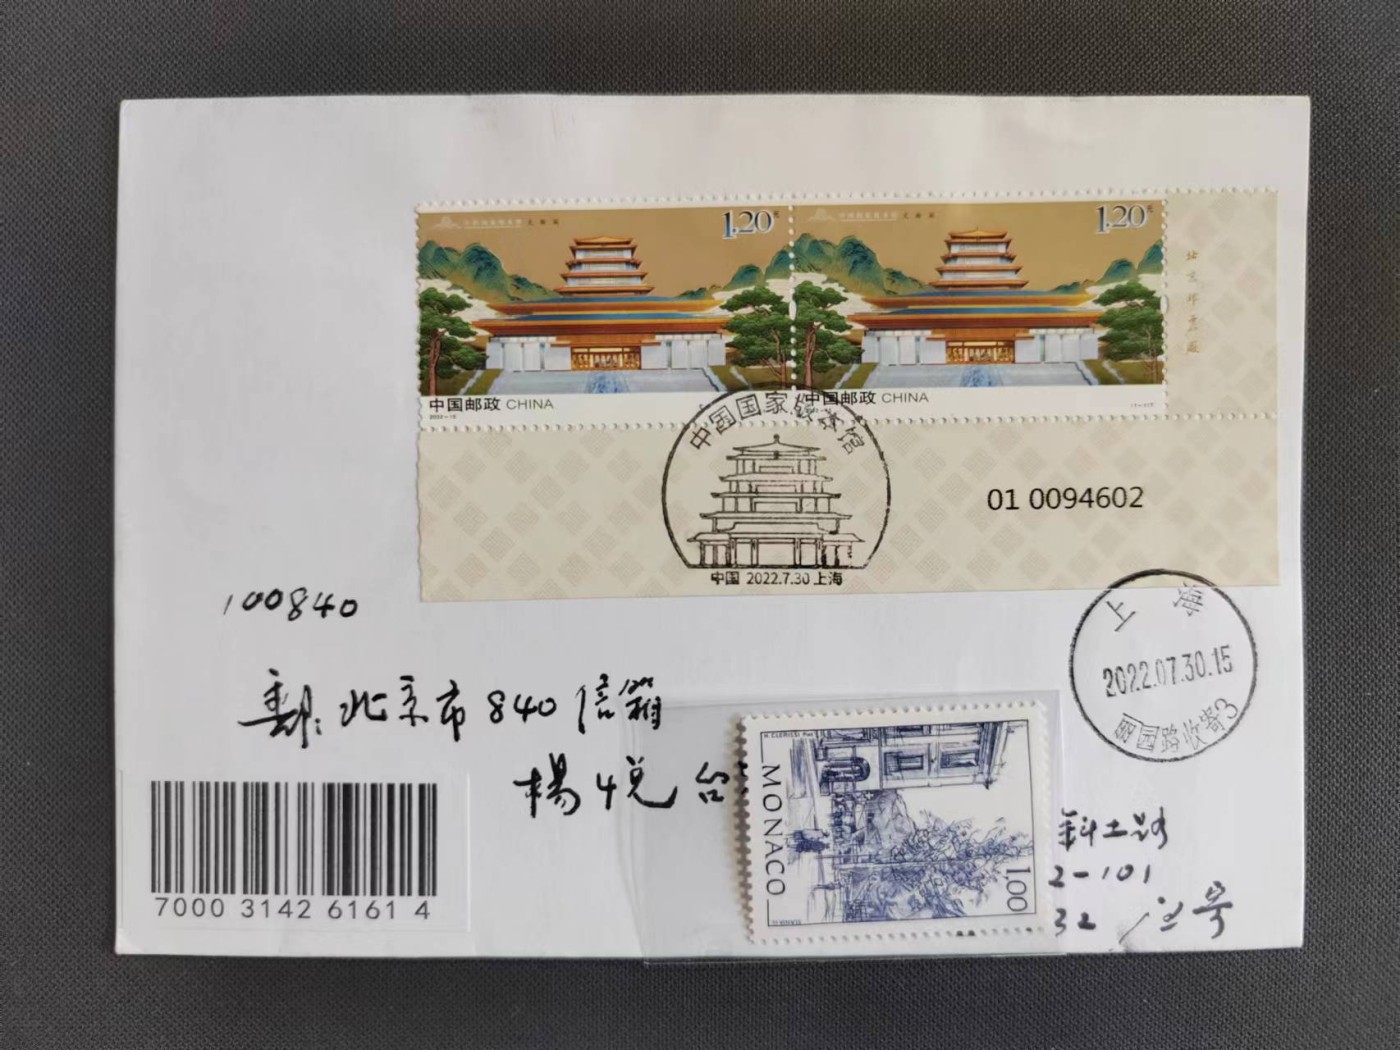 1.20元
1.20元
中国邮政 CHINA
中国邮政 CHINA
中国国家版本馆
01 0094602
中国 2022.7.30 上海
100840
上海
2022.07.30.15
丽园路收寄3
北京市840信箱
楊悦
斜土路
2-101
32
7000 3142 6161 4
H. CLERISSI Pinx
MONACO
1,00